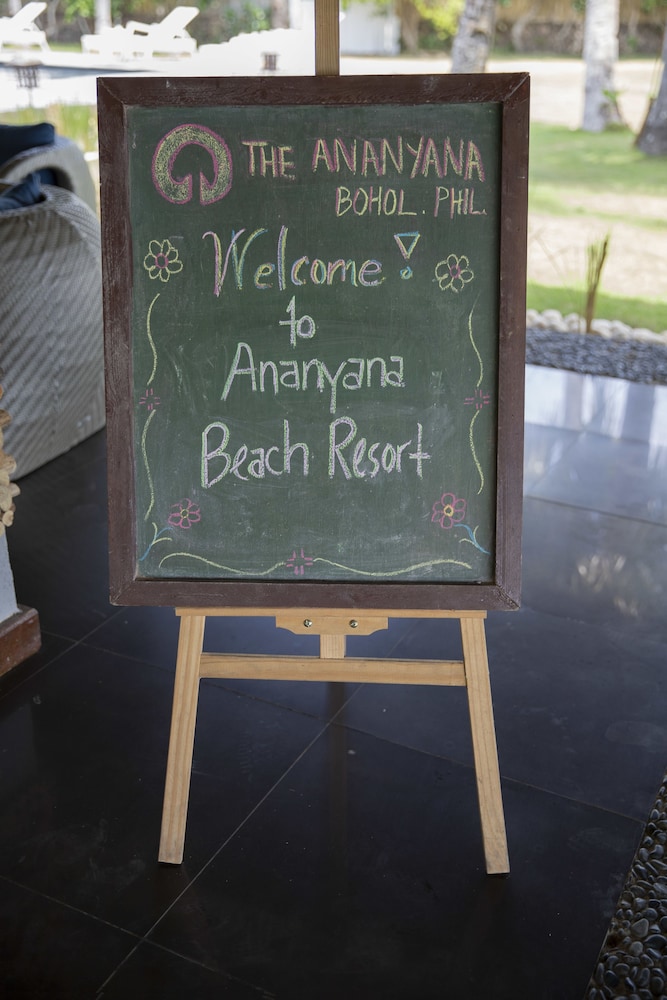 THE ANANYANA
BOHOL. PHIL.
Welcome!
to
Ananyana
Beach Resort